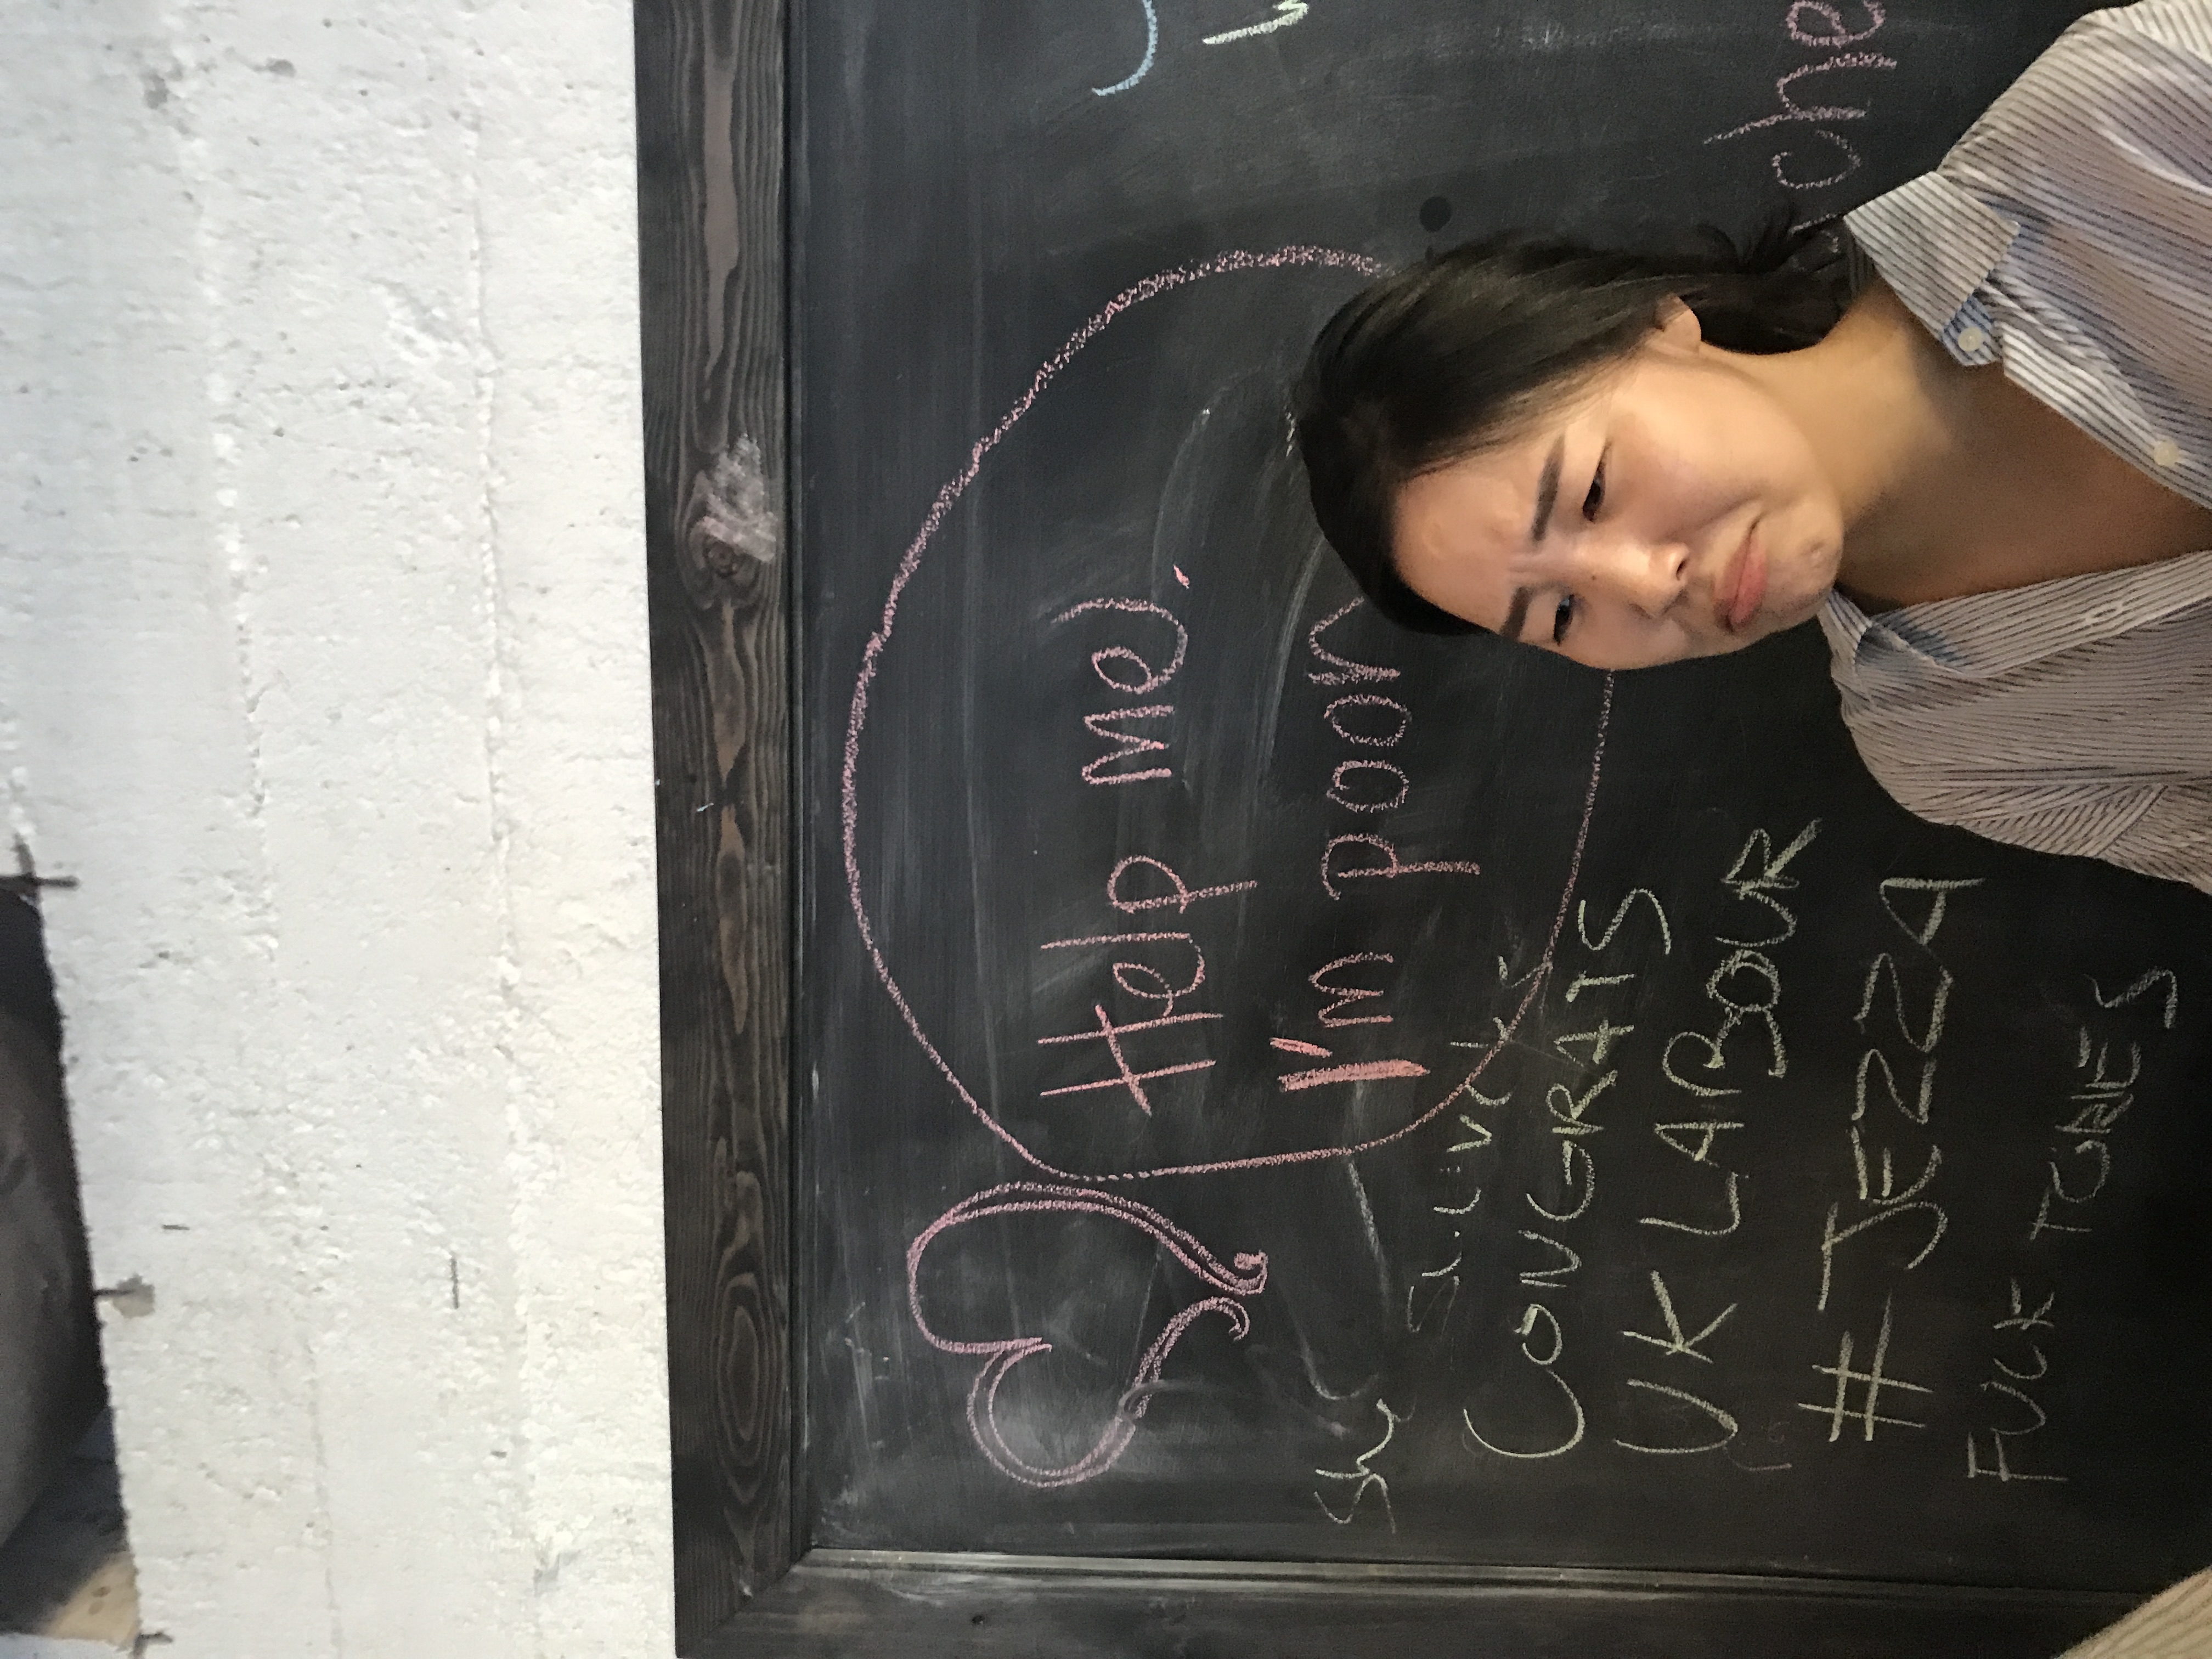 Help me.
I'm poor
She
CONGRATS
UK LABOUR
#JEZZA
FUCK TORIES
che